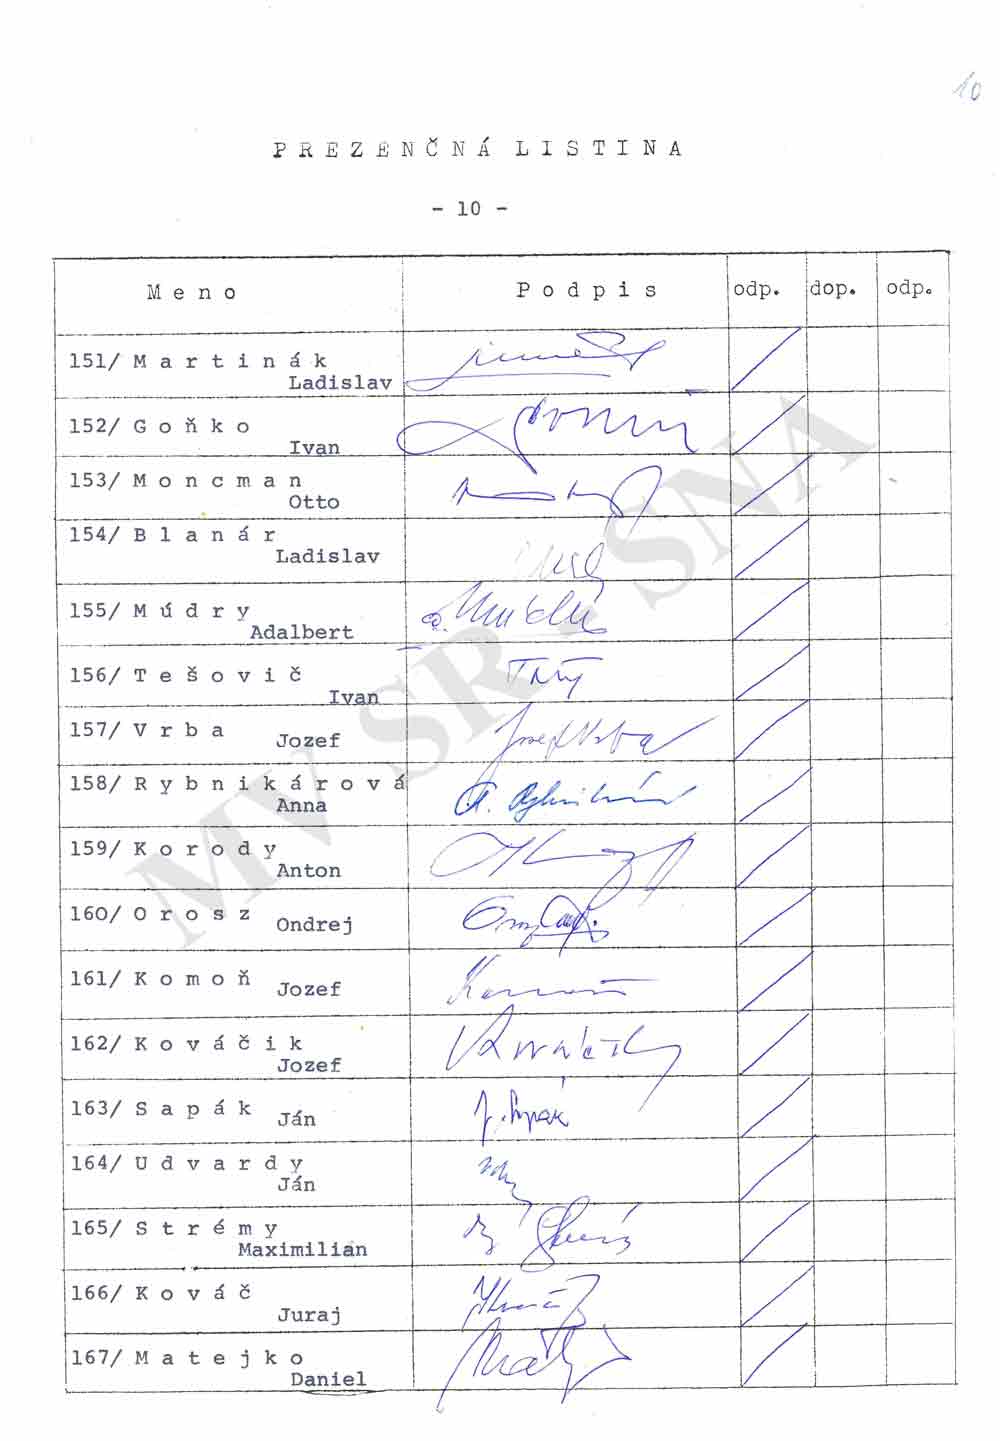 10
PREZENČNÁ LISTINA
- 10 -
Meno Podpis odp. dop. odp.
151/ Martinák
Ladislav
152/ Goňko
Ivan
153/ Moncman
Otto
154/ Blanár
Ladislav
155/ Múdry
Adalbert
156/ Tešovič
Ivan
157/ Vrba
Jozef
Jozef Vrba
158/ Rybnikárová
Anna
A. Rybnikárová
159/ Korody
Anton
160/ Orosz
Ondrej
161/ Komoň
Jozef
162/ Kováčik
Jozef
Kováčik
163/ Sapák
Ján
J. Sapák
164/ Udvardy
Ján
165/ Strémy
Maximilián
166/ Kováč
Juraj
167/ Matejko
Daniel
MV SR - SNA